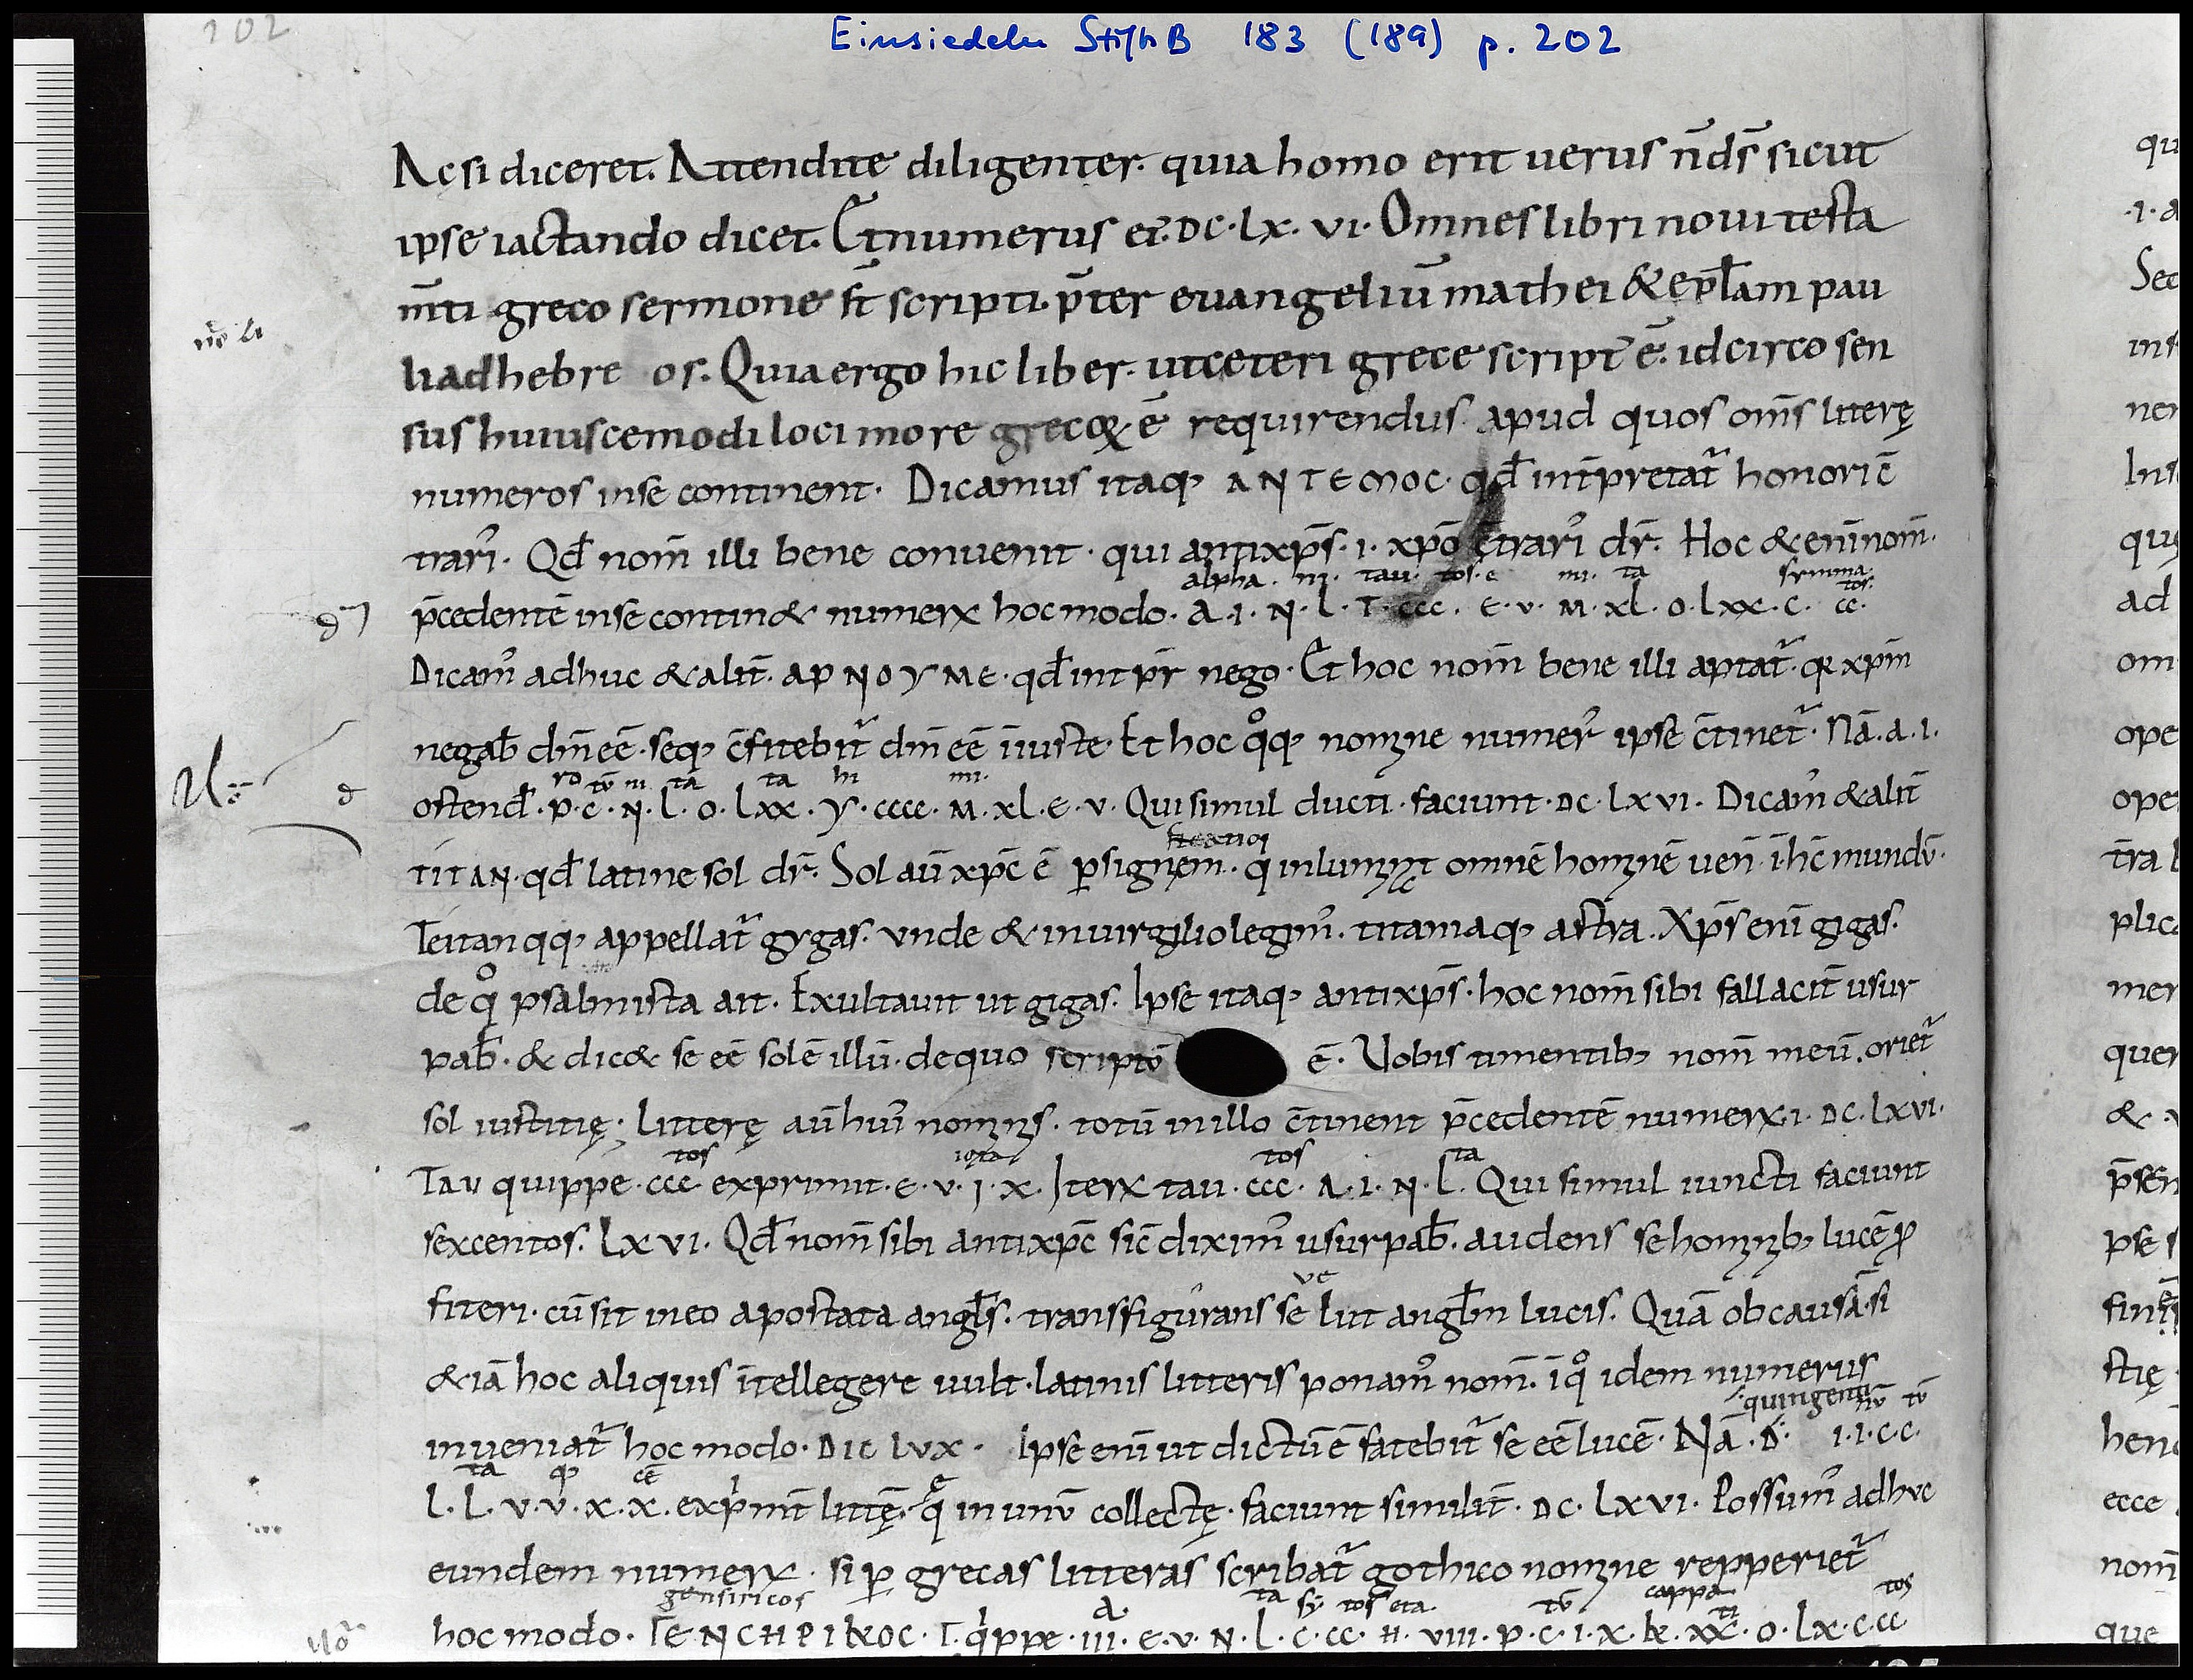 202
Einsiedeln StiftsB 183 (189) p. 202
Ac si diceret. Attendite diligenter. quia homo erit uerus n̄ d̄s sicut
ipse iactando dicet. Et numerus ei(us). DC. Lx. vi. Omnes libri noui testa
m̄ti greco sermone s̄t scripti. p̄ter euangeliū mathei & ep̄lam pau
li ad hebre os. Quia ergo hic liber. ut ceteri grece script̄ ē. idcirco sen
sus huiuscemodi loci more grecoꝝ ē requirendus. apud quos om̄s litterę
numeros in se continent. Dicamus itaq; ANTEMOC. qđ int̄pretat̄ honori c̄
trari᾿. Qđ nom̄ illi bene conuenit. qui antixp̄s. i. xp̄o c̄trari᾿ dr̄. Hoc & eni̅ nom̄.
alpha. ni. tau. tos. e mi. ta symma. tos.
p̄cedentē in se contin& numerꝝ hoc modo. A. i. N. l. T. ccc. E. v. M. xl. o. lxx. c. cc.
Dicam᾿ adhuc & alit̄. APNOYME. qđ int pr̄ nego. Et hoc nom̄ bene illi aptat̄. qꝛ xp̄m
negab̄ dm̄ eē. seq; c̄fitebit̄ dm̄ eē iniuste. Et hoc q̊q; nomine numer᾿ ipse c̄tinet̄. Nā. a. i.
ro tū ni ta ta hi mi.
ostend̄. p. c. N. l. o. lxx. y. cccc. M. xl. e. v. Qui simul ducti. faciunt. DC. Lxvi. Dicam᾿ & alit̄
TITAN. qđ latine sol dr̄. Sol aū xp̄c ē ꝑ signem. q inluminat omnē hominē uen̄. i. hc̄ mundū.
Teitan qq; appellat̄ gygas. vnde & in uirgilio legim᾿. titaniaq; astra. Xp̄s eni̅ gigas.
de q̊ psalmista ait. Exultauit ut gigas. Ipse itaq; antixp̄s. hoc nom̄ sibi fallacit̄ usur
pab̄. & dic& se eē solē illū. de quo scriptū ē. Uobis timentib; nom̄ meū. oriet̄
sol iustitię. Litterę aū hui᾿ nominis. totū in illo c̄tinent p̄cedentē numerꝝ. i. DC. Lxvi.
tos iota tos ta
Tau quippe. ccc. exprimit. e. v. j. x. Iterꝝ tau. ccc. A. i. N. l. Qui simul iuncti faciunt
sexcentos. Lxvi. Qđ nom̄ sibi antixp̄c sic̄ dixim᾿ usurpab̄. audens se hominib; lucē ꝓ
fiteri. cū sit in eo apostata angl̄s. transfigurans se uel ut angl̄m lucis. Quā ob causā. si
&iā hoc aliquis i̅tellegere uult. latinis litteris ponam᾿ nom̄. i̅ q̊ idem numerus
quingenti nū tū
inueniat̄ hoc modo. DIC LVX. Ipse eni̅ ut dictū ē fatebit̄ se eē lucē. Nā. D. i. i. c. c.
ta q; cē
l. L. v. v. x. x. expͥmt̄ littę. q̄ in unū collectę. faciunt similit̄. DC. Lxvi. Possum᾿ adhvc
eundem numerꝝ. si ꝑ grecas litteras scribat̄ gothico nomine repperiet̄
gensiricos a ta sy tos eta. tū cappa ti tos
hoc modo. ΓENCHPIKOC. Γ. qͥppe. iii. e. v. N. l. c. cc. H. viii. p. c. i. x. k. xx. o. lx. c. cc